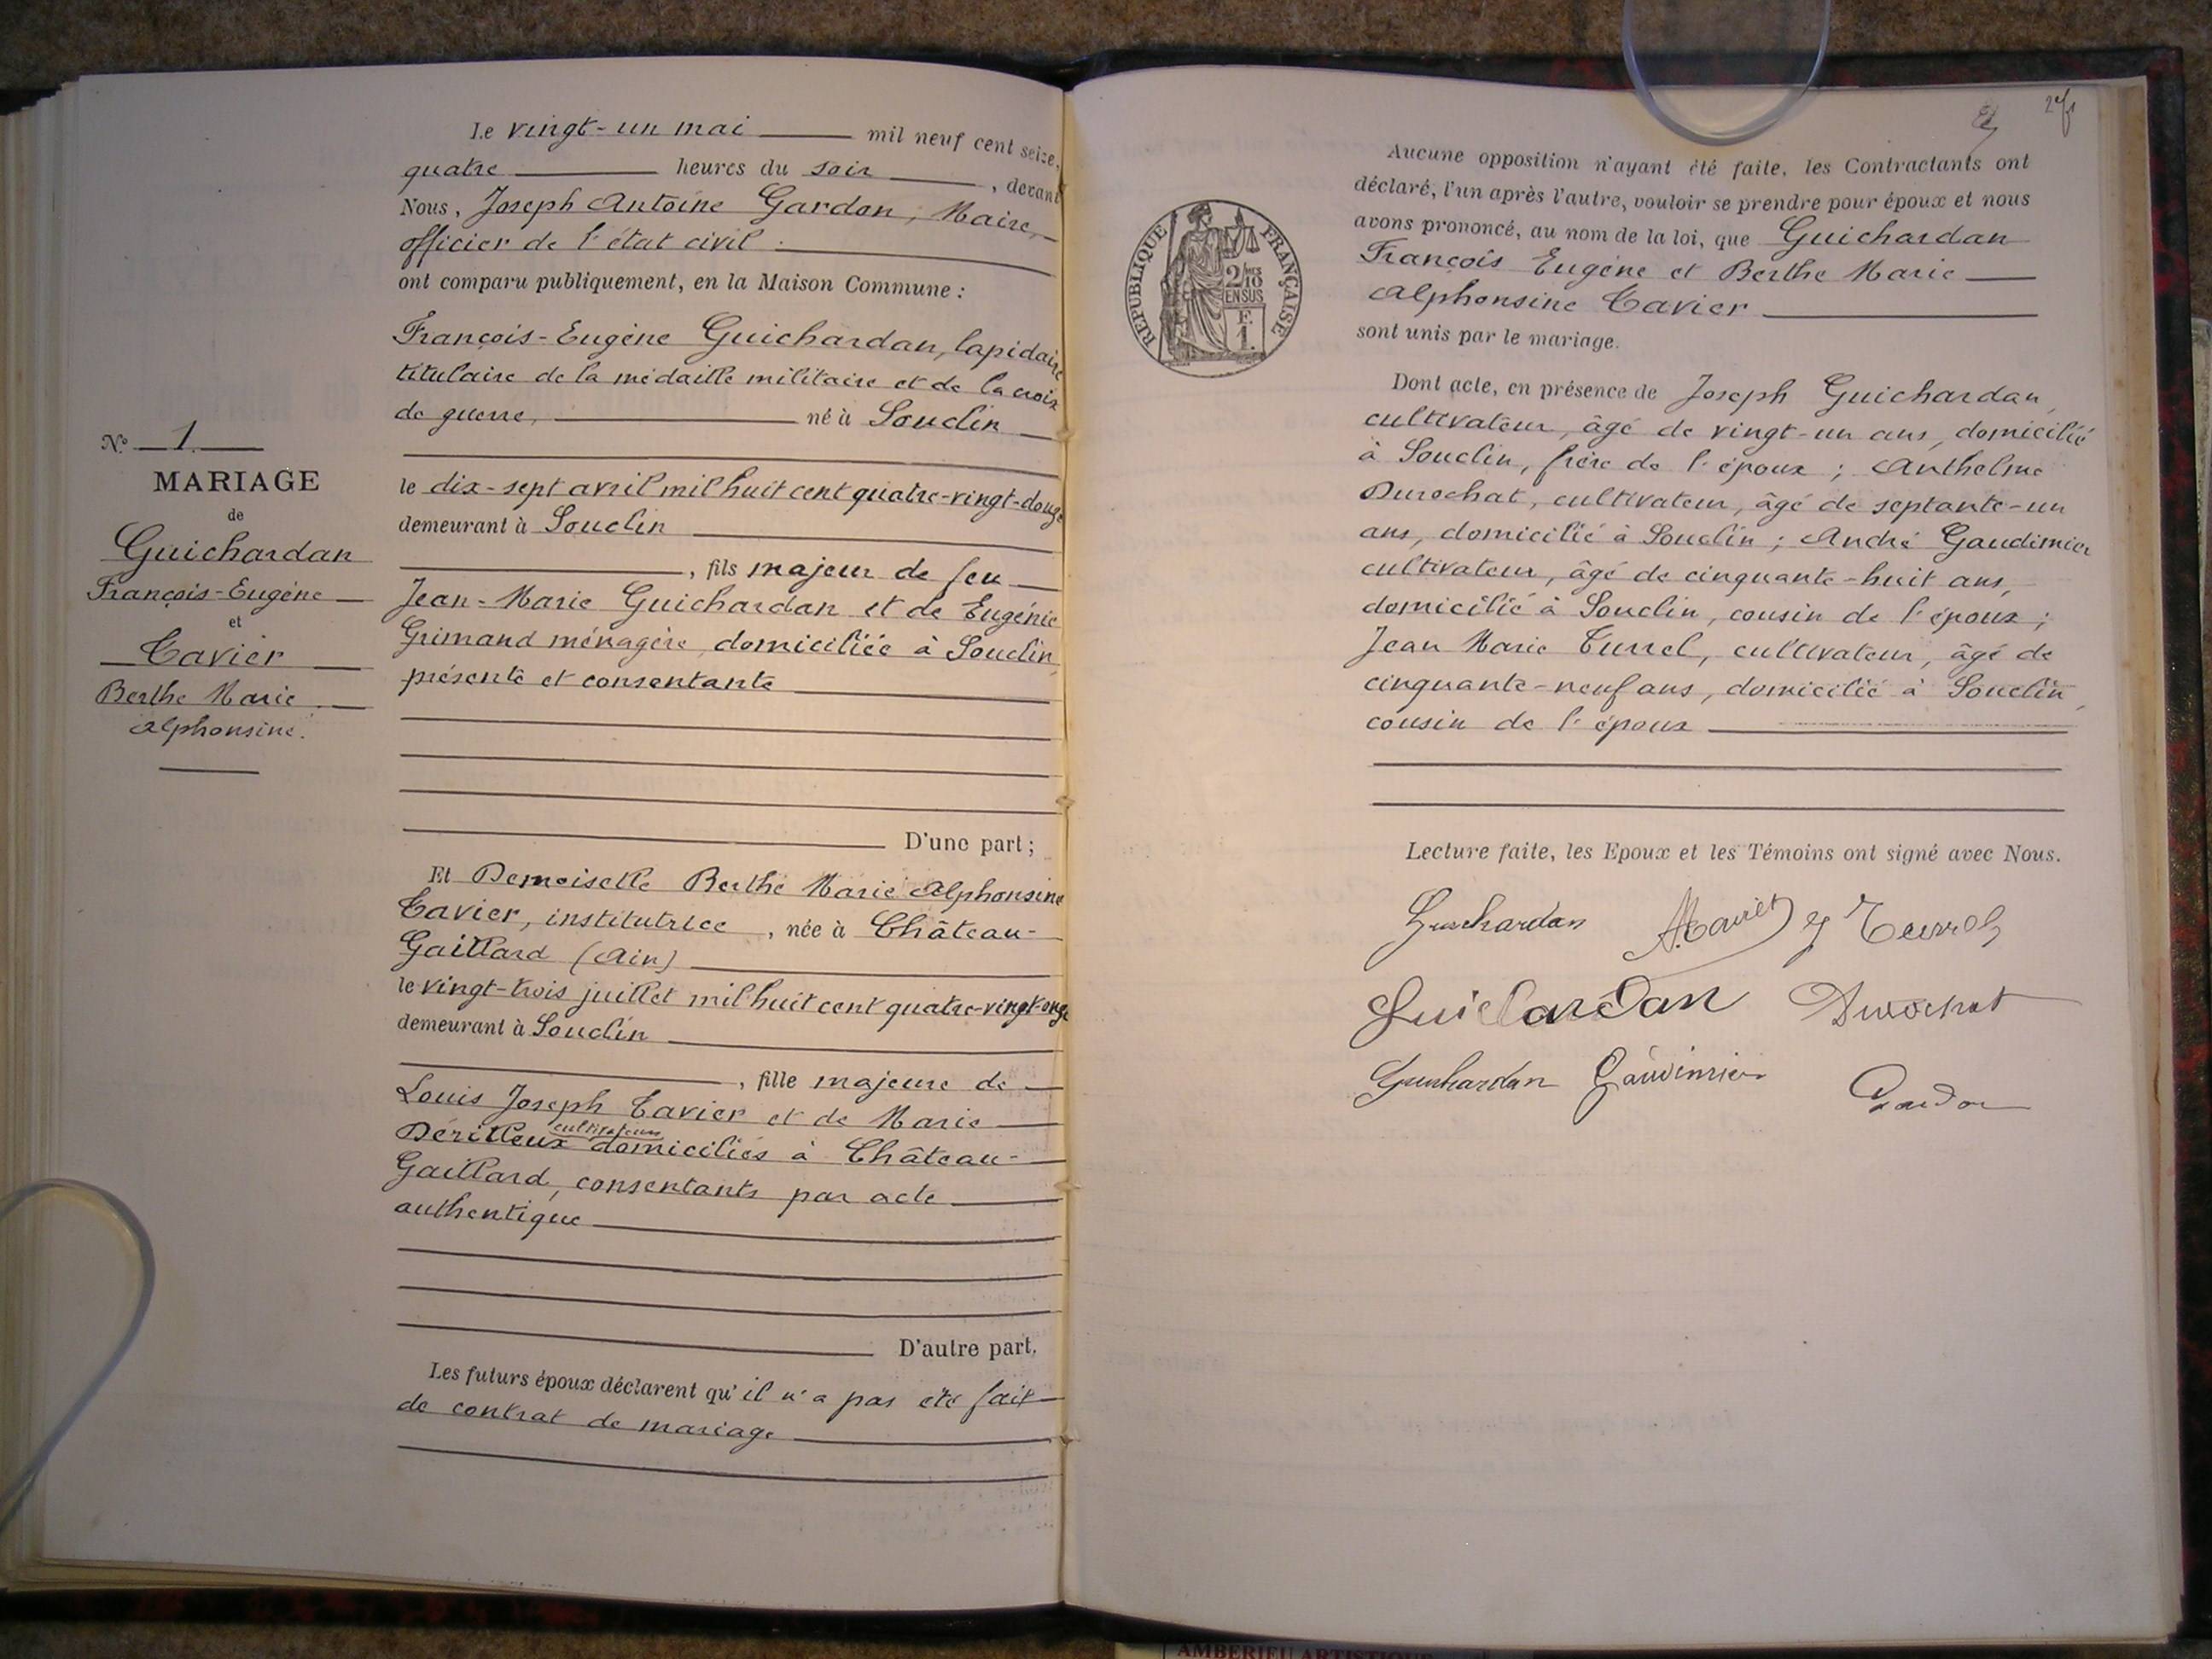 N° 1
MARIAGE
de
Guichardan
François-Eugène
et
Tavier
Berthe Marie
Alphonsine.
Le vingt-un mai mil neuf cent seize,
quatre heures du soir, devant
Nous, Joseph Antoine Gardon, Maire,
officier de l'état civil.
ont comparu publiquement, en la Maison Commune :
François-Eugène Guichardan, lapidaire
titulaire de la médaille militaire et de la croix
de guerre, né à Souclin
le dix-sept avril mil huit cent quatre-vingt-douze
demeurant à Souclin
, fils majeur de feu
Jean-Marie Guichardan et de Eugénie
Grimand ménagère, domiciliée à Souclin,
présente et consentante
D'une part ;
Et Demoiselle Berthe Marie Alphonsine
Tavier, institutrice, née à Château-
Gaillard (Ain)
le vingt-trois juillet mil huit cent quatre-vingt-onze
demeurant à Souclin
, fille majeure de
Louis Joseph Tavier et de Marie
cultivateurs
Dérilleux domiciliés à Château-
Gaillard, consentants par acte
authentique
D'autre part.
Les futurs époux déclarent qu'il n'a pas été fait
de contrat de mariage
2
REPUBLIQUE FRANÇAISE
2/10
EN SUS
F.
1.
Aucune opposition n'ayant été faite, les Contractants ont
déclaré, l'un après l'autre, vouloir se prendre pour époux et nous
avons prononcé, au nom de la loi, que Guichardan
François Eugène et Berthe Marie
Alphonsine Tavier
sont unis par le mariage.
Dont acte, en présence de Joseph Guichardan,
cultivateur, âgé de vingt-un ans, domicilié
à Souclin, frère de l'époux ; Anthelme
Durochat, cultivateur, âgé de septante-un
ans, domicilié à Souclin ; André Gaudimier
cultivateur, âgé de cinquante-huit ans,
domicilié à Souclin, cousin de l'époux ;
Jean Marie Turrel, cultivateur, âgé de
cinquante-neuf ans, domicilié à Souclin,
cousin de l'époux
Lecture faite, les Epoux et les Témoins ont signé avec Nous.
Guichardan Tavier Turrel
Guichardan Durochat
Guichardan Gaudimier Gardon
AMBERIEU ARTISTIQUE